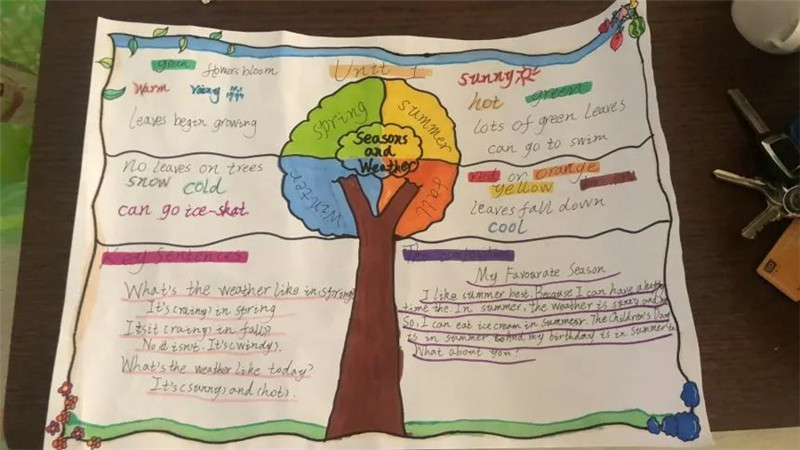 Unit 1
green flowers bloom
Warm
Leaves begin growing
sunny
hot green
lots of green leaves
can go to swim
spring
summer
Seasons
and
Weather
winter
fall
no leaves on trees
snow cold
can go ice-skat
red or orange
yellow
leaves fall down
cool
Key Sentences
What's the weather like in (spring)
It's (rainy) in spring
Is it (rainy) in fall?
No it isn't. It's (windy).
What's the weather like today?
It's (sunny) and (hot).
My Favourate Season
I like summer best. Because I can have a
time the. In summer, the weather is sunny and
So, I can eat ice cream in summer. The Children's Day
is in summer my birthday is in summer
What about you?